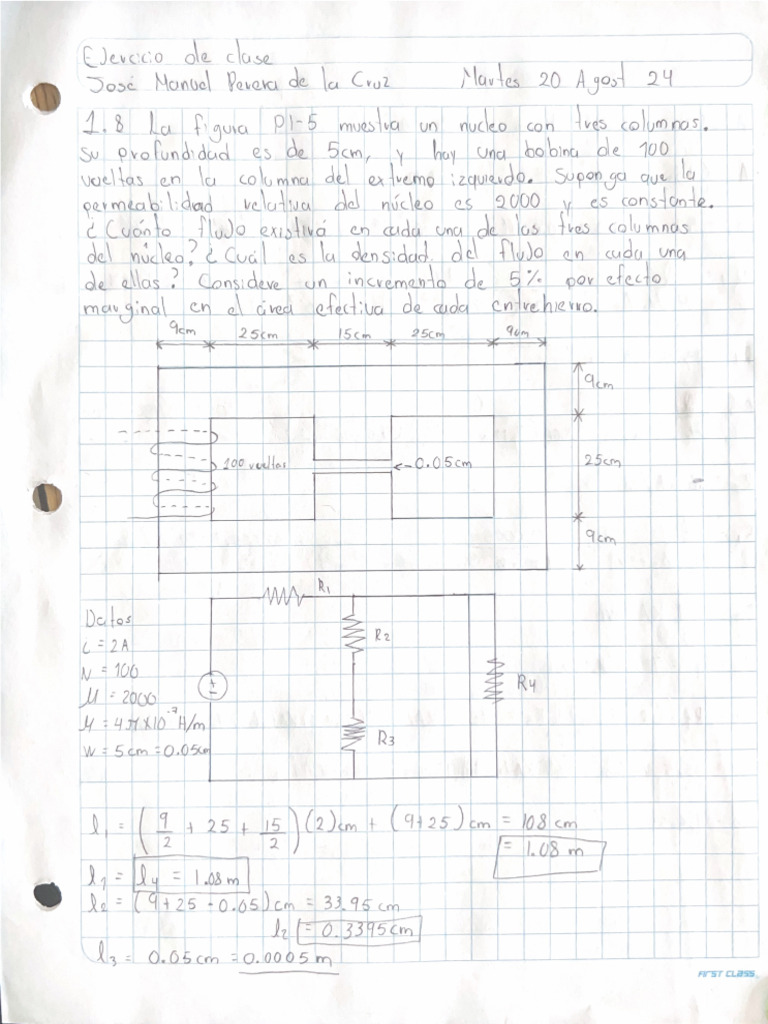 Ejercicio de clase
José Manuel Perera de la Cruz Martes 20 Agost 24
1.8 La figura P1-5 muestra un nucleo con tres columnas.
Su profundidad es de 5cm, y hay una bobina de 100
vueltas en la columna del extremo izquierdo. Suponga que la
permeabilidad relativa del núcleo es 2000 y es constante.
¿Cuánto flujo existirá en cada una de las tres columnas
del núcleo? ¿Cuál es la densidad del flujo en cada una
de ellas? Considere un incremento de 5% por efecto
marginal en el área efectiva de cada entrehierro.
9cm 25cm 15cm 25cm 9cm
9cm
100 vueltas
←0.05cm
25cm
9cm
R1
Datos
i = 2A
R2
N = 100
+
-
R4
μ = 2000
μ = 4π×10⁻⁷ H/m
R3
W = 5cm = 0.05cm
l1 = (9/2 + 25 + 15/2)(2)cm + (9+25)cm = 108 cm
= 1.08 m
l1 = l4 = 1.08 m
l2 = (9+25-0.05)cm = 33.95 cm
l2 = 0.3395cm
l3 = 0.05cm = 0.0005 m
FIRST CLASS